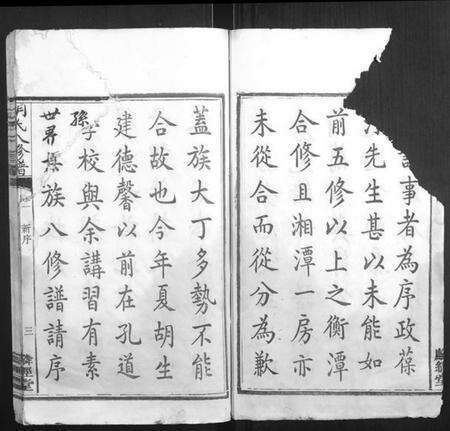 事者為序政葆
先生甚以未能如
前五修以上之衡潭
合修且湘潭一房亦
未從合而從分為歉
蓋族大丁多勢不能
合故也今年夏胡生
建德馨以前在孔道
學校與余講習有素
孫
世界族八修譜請序
氏八修譜
新序
三
經堂